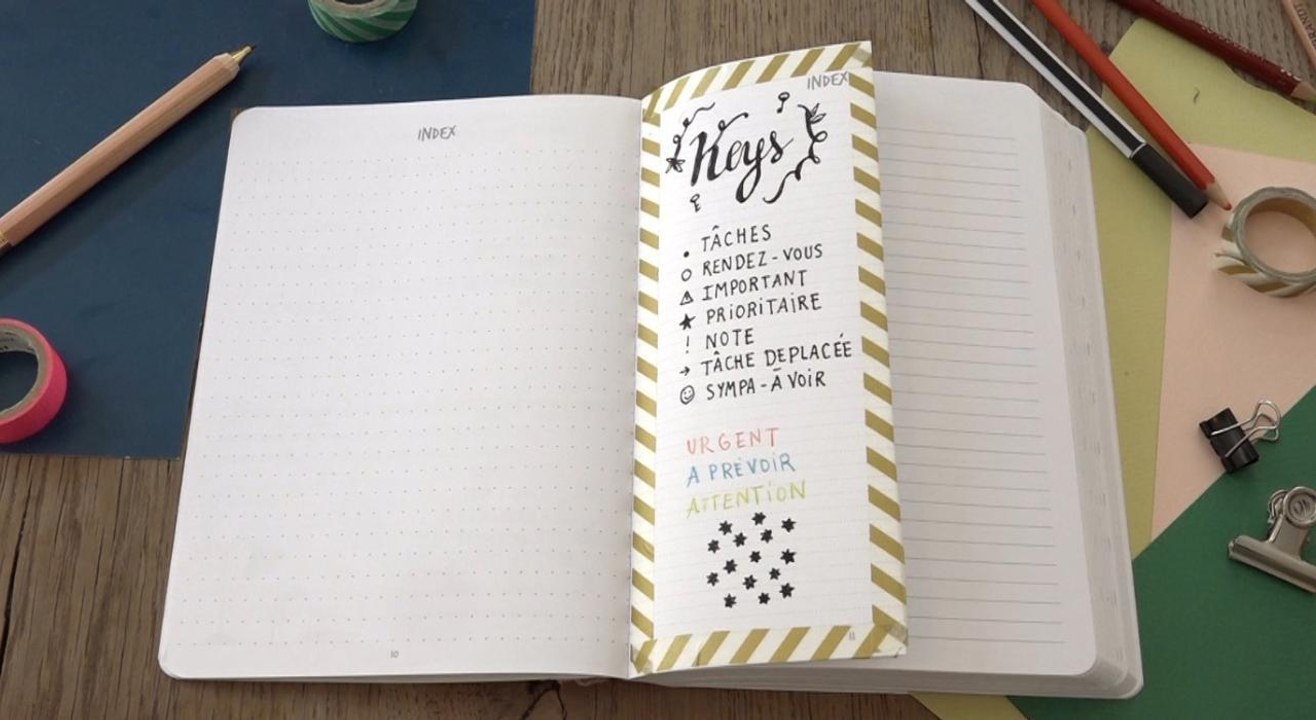 INDEX
10
INDEX
Keys
• TÂCHES
○ RENDEZ-VOUS
⚠ IMPORTANT
★ PRIORITAIRE
! NOTE
→ TÂCHE DEPLACÉE
☺ SYMPA-À VOIR
URGENT
A PRÉVOIR
ATTENTION
11